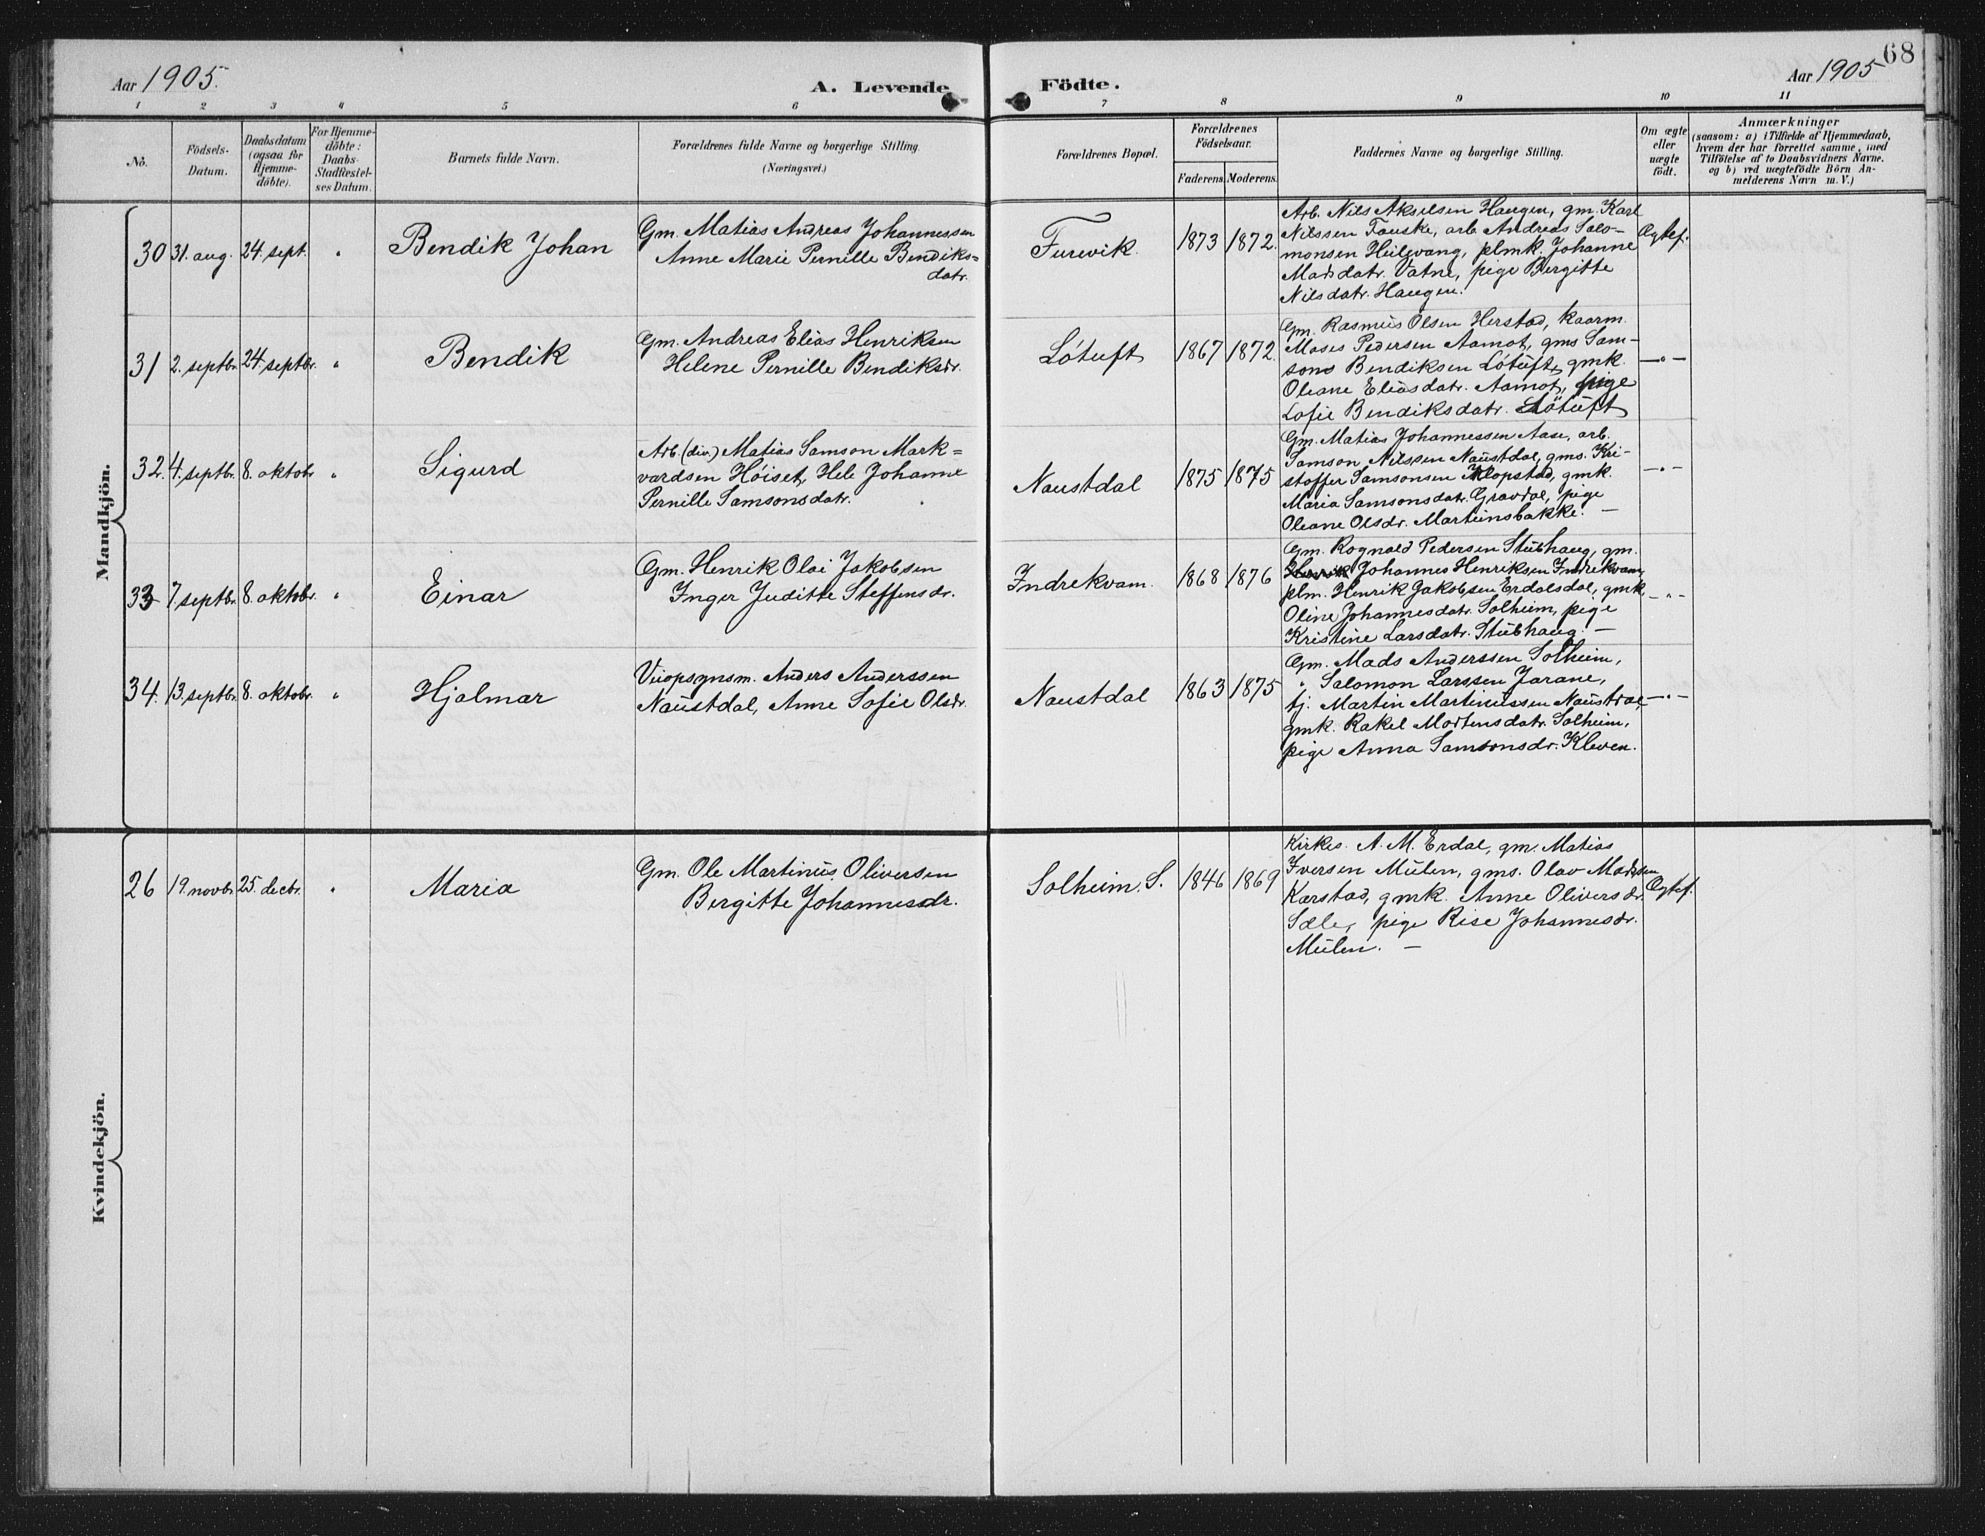 68
Aar 1905.
A. Levende
Födte.
Aar 1905
1 2 3 4 5 6 7 8 9 10 11
No.
Födsels-
Datum.
Daabsdatum
(ogsaa for
Hjemme-
döbte).
For Hjemme-
döbte:
Daabs-
Stadfæstel-
ses Datum.
Barnets fulde Navn.
Forældrenes fulde Navne og borgerlige Stilling.
(Næringsvei.)
Forældrenes Bopæl.
Forældrenes
Födselsaar.
Faderens. Moderens.
Faddernes Navne og borgerlige Stilling.
Om ægte
eller
uægte
födt.
Anmærkninger
(saasom: a) i Tilfælde af Hjemmedaab,
hvem der har forrettet samme, med
Tilföielse af to Daabsvidners Navne.
og b) ved uægtefödte Börn An-
melderens Navn m. V.)
Mandkjön.
30 31. aug. 24. sept. " Bendik Johan
Gm. Matias Andreas Johannessen
Anne Marie Pernille Bendiks=
datr.
Furevik. 1873 1872.
Arb. Nils Akselsen Haugen, gm. Karl
Nilssen Fauske, arb. Andreas Salo-
monsen Heilevang, plmk. Johanne
Madsdatr. Vatne, pige Bergitte
Nilsdatr. Haugen.
Ægtef.
31 2. septbr. 24. septbr. " Bendik
Gm. Andreas Elias Henriksen
Helene Pernille Bendiksdr.
Løtuft 1867 1872.
Gm. Rasmus Olsen Herstad, kaarm.
Moses Pedersen Aamot, gms Sam-
son Bendiksen Løtuft, gmk.
Oleane Eliasdatr. Aamot, pige
Lofie Bendiksdatr. Løtuft
—"—
32. 4. septbr. 8. oktobr. " Sigurd
Arb. (div.) Matias Samson Mark=
vardsen Høiset, Hele Johanne
Pernille Samsonsdatr.
Naustdal 1875 1875
Gm. Matias Johannessen Aase, arb.
Samson Nilssen Naustdal, gms. Kri-
stoffer Samsonsen Klopstad, gmk.
Maria Samsonsdatr. Gravdal, pige
Oleane Olsdr. Martinsbakke. —
—"—
33 7. septbr. 8. oktobr. " Einar
Gm. Henrik Olai Jakobsen
Inger Juditte Steffensdr.
Indrekvam. 1868 1876
Gm. Rognald Pedersen Stubhaug, gm.
Henrik Johannes Henriksen Indrekvam,
plm. Henrik Jakobsen Erdalsdal, gmk.
Oline Johannesdatr. Solheim, pige
Kristine Larsdatr. Stubhaug. —
—"—
34. 13. septbr. 8. oktobr. " Hjalmar
Anders Anderssen
Naustdal, Anne Sofie Olsdr.
Naustdal 1863 1875
Gm. Mads Anderssen Solheim,
" Salomon Larssen Jarane,
tj. Martin Martinussen Naustdal
gmk. Rakel Mortensdatr. Solheim,
pige Anna Samsonsdr. Kleven.
—"—
Kvindekjön.
26 19. novbr. 25. decbr. " Maria
Gm. Ole Martinus Oliversen
Bergitte Johannesdr.
Solheim. S. 1846 1869
Kirkes. A. M. Erdal, gm. Matias
Iversen Mulen, gms. Olav Madssen
Karstad, gmk. Anne Oliversdr.
Sæle, pige Rise Johannesdr.
Mulen. —
Ægtef.